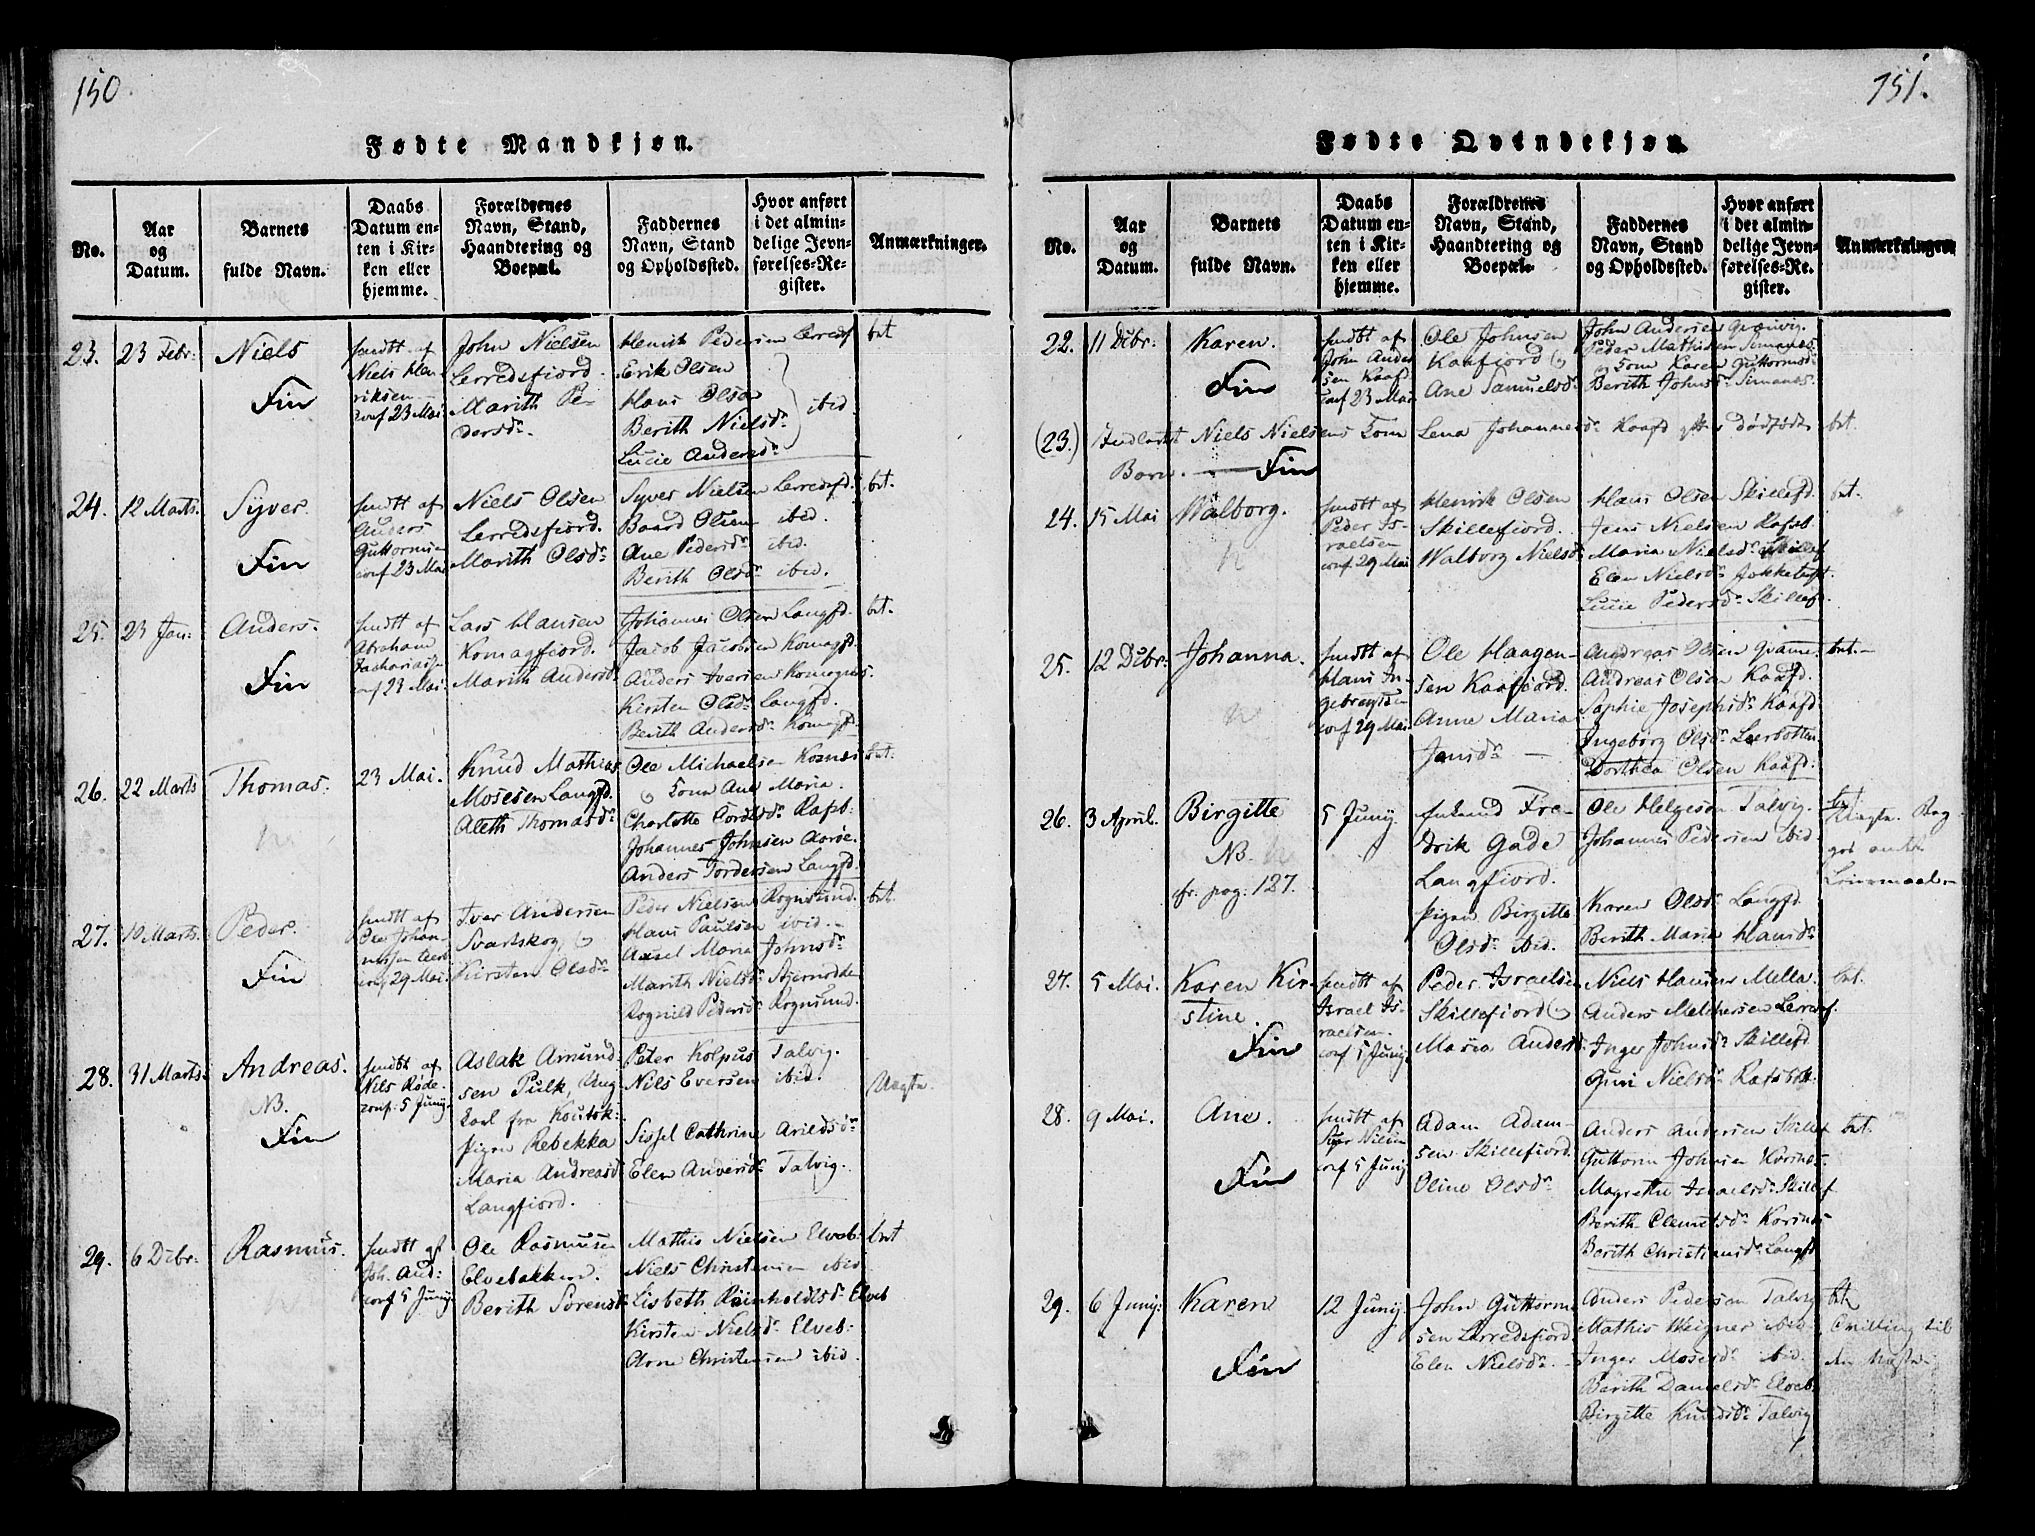 150.
Fødte Mandkjøn.
No.
Aar
og
Datum.
Barnets
fulde Navn.
Daabs
Datum en-
ten i Kir-
ken eller
hjemme.
Forældrenes
Navn, Stand,
Haandtering og
Boepæl.
Faddernes
Navn, Stand
og Opholdssted.
Hvor anført
i det almin-
delige Jevn-
førelses-Re-
gister.
Anmærkninger.
23.
23 Febr:
Niels
Fin
hmdt. af
Niels Hen
riksen
conf 23 Mai
John Nielsen
Lerredsfiord.
Marith Pe-
dersdr.
Henrik Pedersen Lerredsf
Erik Olsen
Hans Olsen
Berith Nielsdr. ibid.
Lucie Andersdr
bet
24.
12 Marts.
Syver.
Fin
hmdt af
Anders
Guttormsen
conf 23 Mai
Niels Olsen
Lerredsfiord.
Marith Olsdr
Syver Nielsen Lerredsfd.
Baard Olsen ibid.
Ane Pedersdr ibid.
Berith Olsdr ibid.
bt.
25.
23 Jan:
Anders.
Fin
hmdt af
Abraham
Zachariasen
conf 23 Mai
Lars Hansen
Komagfiord.
Marith Andersdr
Johannes Olsen Langfd.
Jacob Jacobsen Komagfd.
Anders Iversen Komagnes.
Kirsten Olsdr Langfd.
Berith Andersdr Komagfd
bt.
26.
22 Marts
Thomas.
23 Mai.
Knud Mathias
Mosesen Langfd.
Aleth Thomasdr
Ole Michaelsen Kornes
Kone Ane Maria.
Charlotte Rafsb.
Johannes Johnsen Aarøe.
Anders Tordersen Langfd.
bt.
27.
10 Marts.
Peder.
Fin
hmdt af
Ole Johan-
nessen
conf 29 Mai
Iver Andersen
Svartskog,
Kirsten Olsdr
Peder Nielsen Rognsund.
Hans Paulsen ibid.
Maria Johnsdr
Marith Nielsdr Stjernodde
Rognild Pedersdr Rognsund.
bt.
28.
31 Marts.
Andreas.
NB.
Fin
hmdt af
Nils Røde.
conf. 5 Junij
Aslak Amund-
sen Pulk, Ung
karl fra Koutok:
Pigen Rebekka
Maria Andreasd
Langfiord.
Peter Kolpus Talvig.
Nils Eversen ibid.
Sissel Cathrine Arildsdr
Elen Andersdr Talvig.
Uægte.
29.
6 Dcbr:
Rasmus.
hmdt af
Joh. And:
conf 5 Junij
Ole Rasmusen
Elvebakken.
Berith Sorensd
Mathis Nielsen Elveb:
Niels Christensen ibid.
Lisbeth Reinholdtsdr Elveb
Kirsten Nielsdr Elveb:
Arne Christensen ibid.
bet
151.
Fødte Qvindekjøn.
No.
Aar
og
Datum.
Barnets
fulde Navn.
Daabs
Datum en-
ten i Kir-
ken eller
hjemme.
Forældrenes
Navn, Stand,
Haandtering og
Boepæl.
Faddernes
Navn, Stand
og Opholdssted.
Hvor anført
i det almin-
delige Jevn-
førelses-Re-
gister.
Anmærkninger.
22.
11 Dcbr:
Karen.
Fin
hmdt af
John Ander
sen Kaafd
conf 23 Mai
Ole Johnsen
Kaafiord
Ane Samuelsd.
John Andersen
Peder Mathisen Simanes.
Kone Karen Guttormsd
Berith Johnsd. Simanes.
(23.)
Indlæstet Niels Nielsens Kone Lena Johannesdr Kaafd dødfødt
Barn. — Fin
bt.
24.
15 Mai
Walborg.
hmdt af
Peder Is-
raelsen
conf 29 Mai
Henrik Olsen
Skillefiord.
Walborg Nielsd
Hans Olsen Skillefd.
Jens Nielsen Rafsb.
Maria Nielsdr Skillef
Elen Nielsdr
Lucie Pedersdr Skillef
bt.
25.
12 Dcbr:
Johanna.
hmdt af
Hans In-
gebrigtsen
conf 29 Mai
Ole Haagen-
sen Kaafiord.
Anne Maria
Jensdr —
Andreas Olsen
Andreas Olsen Kaafd.
Sophie Josephsdr Kaafd
Ingeborg Olsdr Leerbotten
Dorthea Olsen Kaafd:
bt.
26.
3 April.
Birgitte
NB.
cfr. pag: 127.
5 Junij
Fre-
drik Gade
Langfiord.
Pigen Birgitte
Olsdr ibid.
Ole Helgeson Talvig.
Johannes Pedersen ibid
Karen Olsdr Langfd
Berith Maria Hansdr
Uægte. Beg-
ges andet
Leiermaal
27.
5 Mai.
Karen Kir-
stine.
Fin
hmdt af
Israel Is-
raelsen
conf 5 Junij
Peder Israelsen
Skillefiord
Maria Anders
Niels Hansen Mella.
Anders Melchersen Lerredsf.
Inger Johnsdr Skillefd
Guri Nielsdr Rafsbott.
bt.
28.
9 Mai.
Ane.
Fin
hmdt af
Nilsen
conf 5 Junij
Adam Adam-
sen Skillefiord.
Oline Olsdr
Anders Andersen Skillef
Guttorm Johnsen Korsnes.
Magrethe Israelsdr Skillef
Berith Clemetsdr Korsnes
Berith Christiansdr Langfd
bt.
29.
6 Junij:
Karen
Fin
12 Junij
John Guttorm-
sen Lerredsfiord
Elen Nielsdr
Anders Pedersen Talvig
Mathis Weigner ibid
Inger Mosesdr ibid
Berith Danielsdr Elveb.
Birgitte Knudsdr Talvig
bt